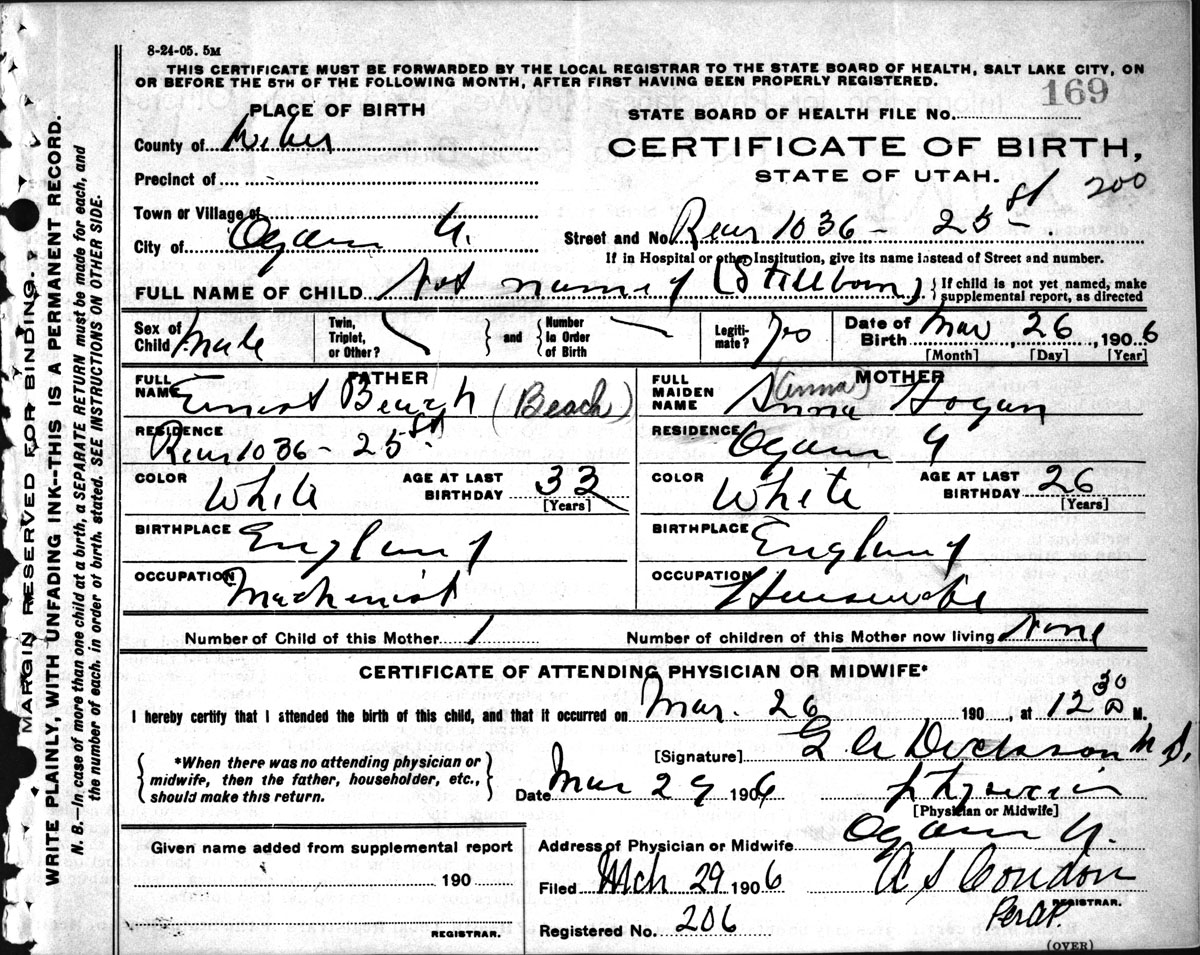 8-24-05. 5M
THIS CERTIFICATE MUST BE FORWARDED BY THE LOCAL REGISTRAR TO THE STATE BOARD OF HEALTH, SALT LAKE CITY, ON
OR BEFORE THE 5TH OF THE FOLLOWING MONTH, AFTER FIRST HAVING BEEN PROPERLY REGISTERED.
PLACE OF BIRTH
STATE BOARD OF HEALTH FILE No. 169
County of Weber
CERTIFICATE OF BIRTH,
Precinct of
STATE OF UTAH.
200
Town or Village of
City of Ogden U.
Street and No. Rear 1036 - 25 st
If in Hospital or other Institution, give its name instead of Street and number.
FULL NAME OF CHILD Not named (Stillborn)
{ If child is not yet named, make supplemental report, as directed
Sex of Child Male
Twin, Triplet, or Other?
} and { Number in Order of Birth
Legitimate? Yes
Date of Birth Mar, 26, 1906
[Month] [Day] [Year]
FATHER
FULL NAME Ernest Beach (Beach)
MOTHER
FULL MAIDEN NAME Anna (Anna) Hogan
RESIDENCE Rear 1036 - 25 st
RESIDENCE Ogden U
COLOR White AGE AT LAST BIRTHDAY 33 [Years]
COLOR White AGE AT LAST BIRTHDAY 26 [Years]
BIRTHPLACE England
BIRTHPLACE England
OCCUPATION Machinist
OCCUPATION Housewife
Number of Child of this Mother 1
Number of children of this Mother now living None
CERTIFICATE OF ATTENDING PHYSICIAN OR MIDWIFE*
I hereby certify that I attended the birth of this child, and that it occurred on Mar. 26 190 , at 12 30 M.
[Signature] Dickson M D.
{ *When there was no attending physician or midwife, then the father, householder, etc., should make this return. }
Date Mar 29 1906 physician
[Physician or Midwife]
Given name added from supplemental report
190
REGISTRAR.
Address of Physician or Midwife Ogden U.
Filed Mch 29 1906 Condon
REGISTRAR.
Registered No. 206
Per
(OVER)
MARGIN RESERVED FOR BINDING.
WRITE PLAINLY, WITH UNFADING INK--THIS IS A PERMANENT RECORD.
N. B.—In case of more than one child at a birth, a SEPARATE RETURN must be made for each, and
the number of each, in order of birth, stated. SEE INSTRUCTIONS ON OTHER SIDE.